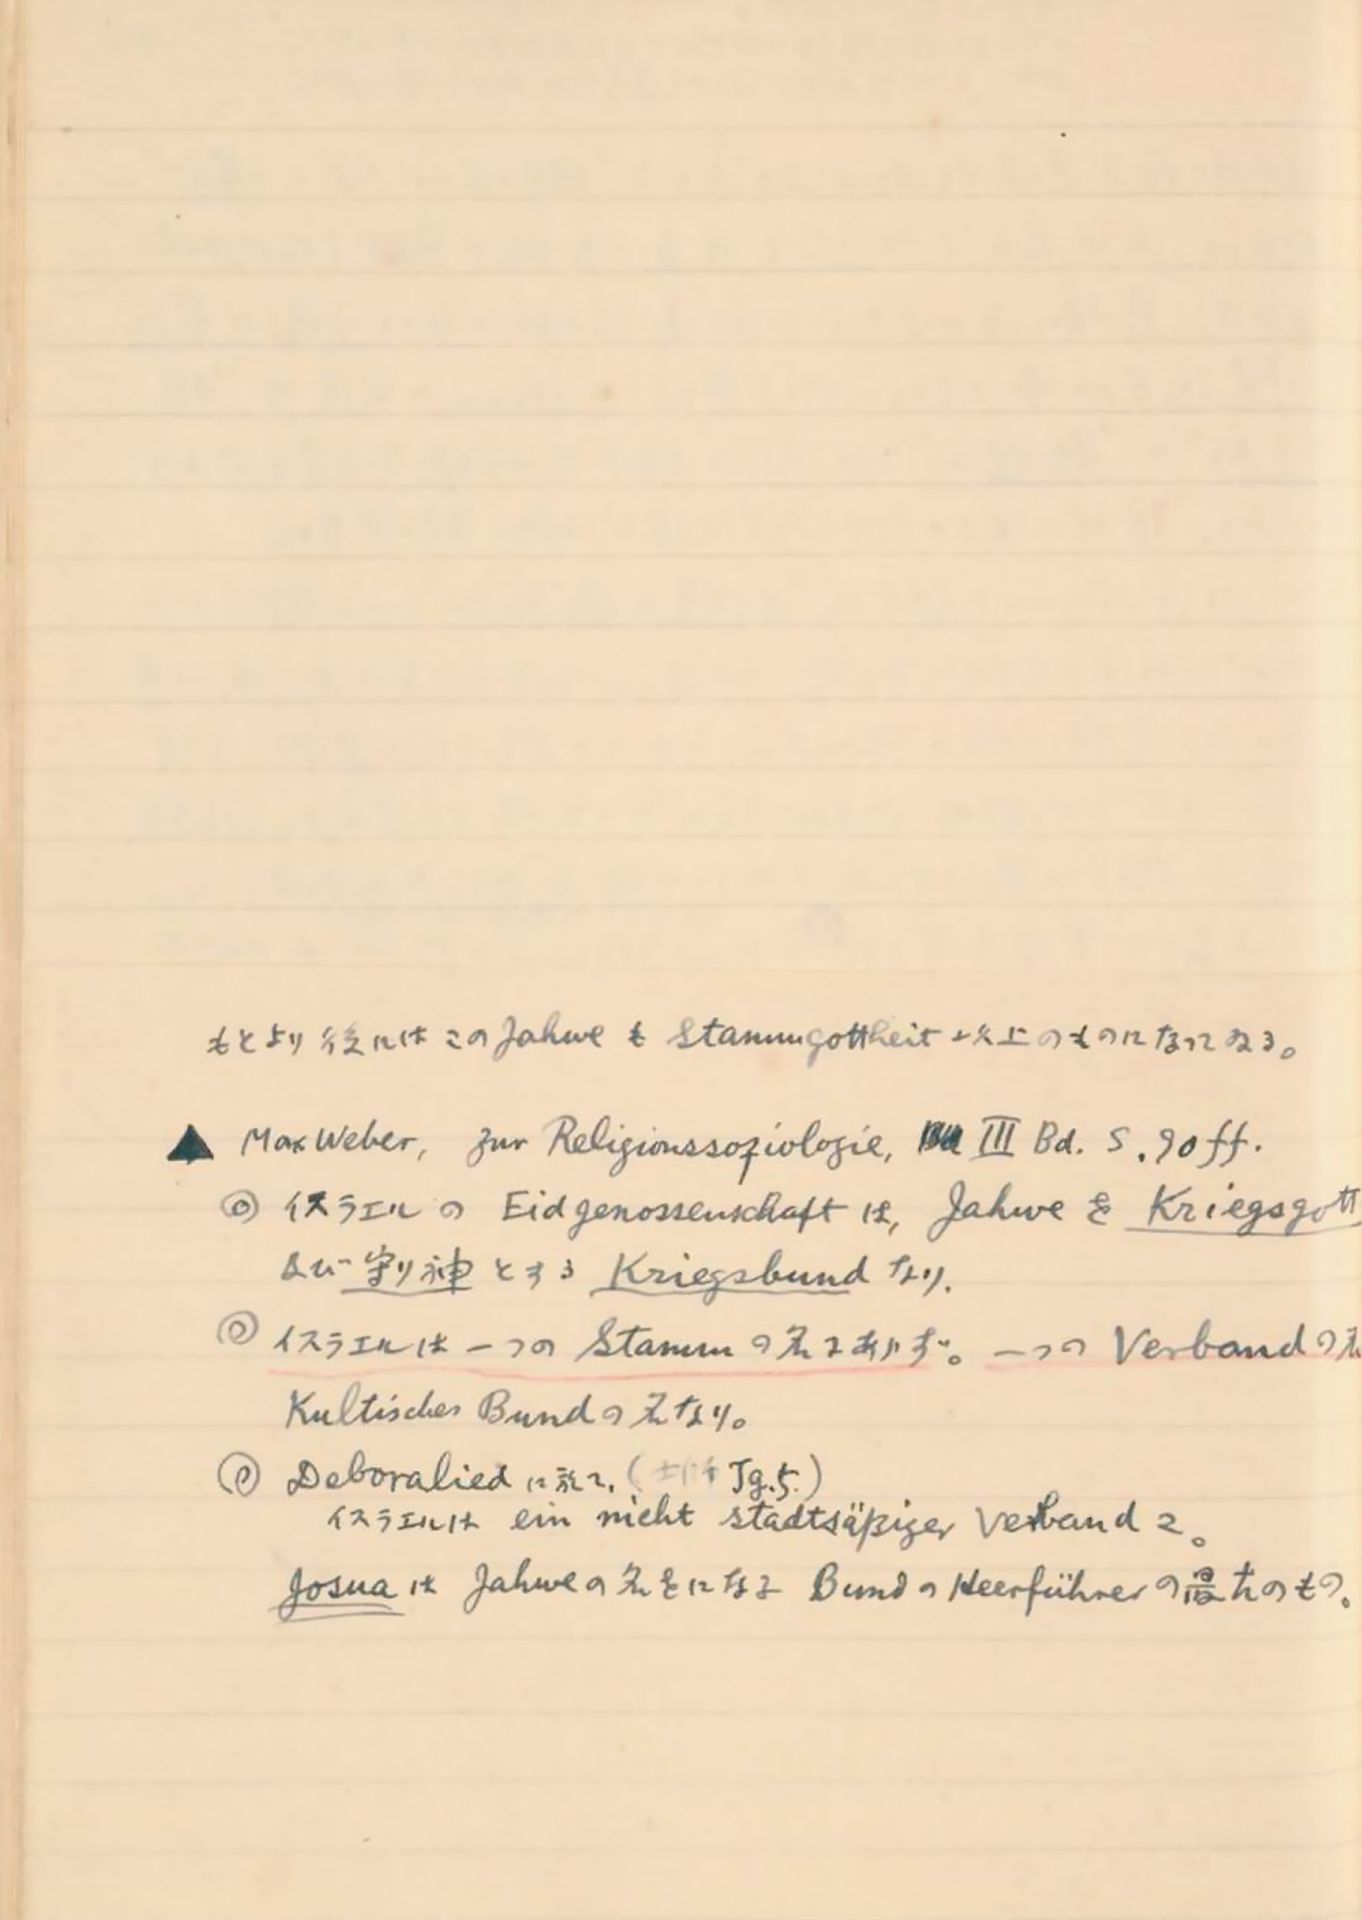 もとより後にはこのJahweもStammgottheit以上のものになってゐる。
▲ Max Weber, zur Religionssoziologie, III Bd. S. 90 ff.
◎ イスラエルの Eidgenossenschaft は, Jahwe を Kriegsgott
及び守り神とする Kriegsbund なり.
◎ イスラエルは一つの Stamm の名であらず。一つの Verband の名
Kultischer Bund の名なり。
◎ Deboralied に於て, (士師 Jg. 5.)
イスラエルは ein nicht stadtsäßiger Verband で。
Josua は Jahwe の名をになふ Bund の Heerführer の最古のもの。